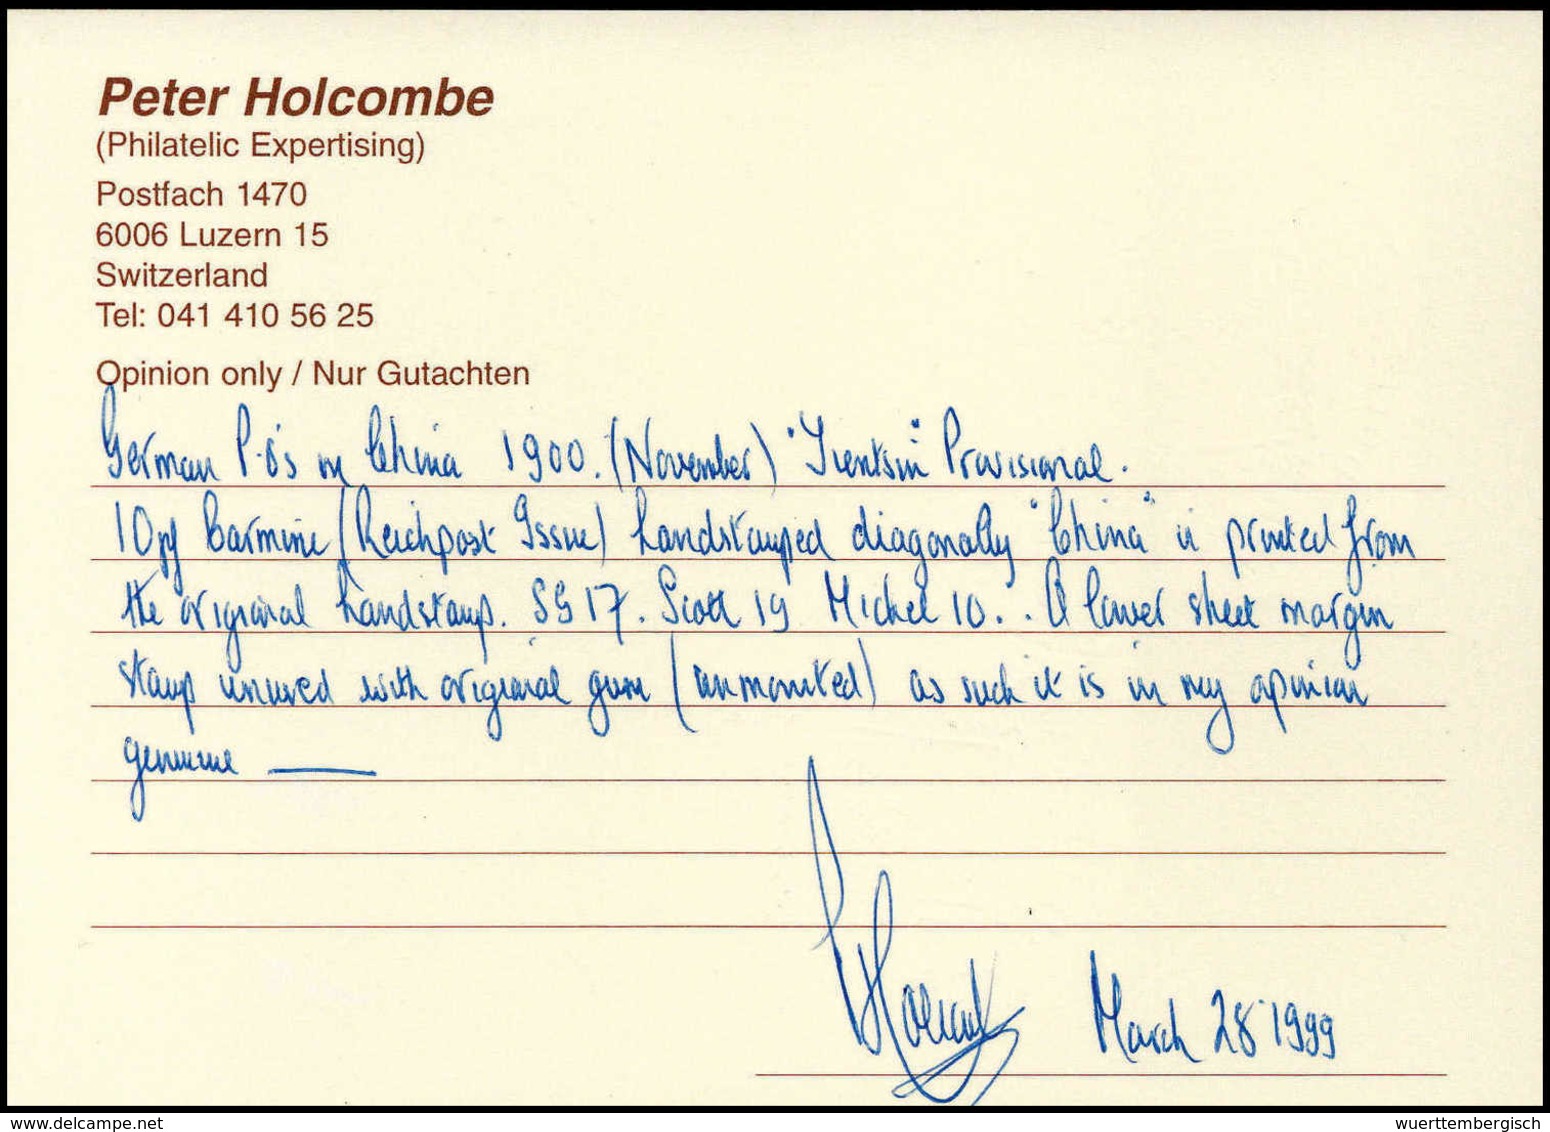 Peter Holcombe
(Philatelic Expertising)
Postfach 1470
6006 Luzern 15
Switzerland
Tel: 041 410 56 25
Opinion only / Nur Gutachten
German P.O's in China 1900. (November) "Tientsin" Provisional.
10pf Carmine (Reichpost Issue) handstamped diagonally "China" is printed from
the original handstamp. SG 17. Scott 19 Michel 10.. A lower sheet margin
stamp unused with original gum (unmounted) as such it is in my opinion
genuine ——
P Holcombe March 28 1999
delcampe.net
wuerttembergisch